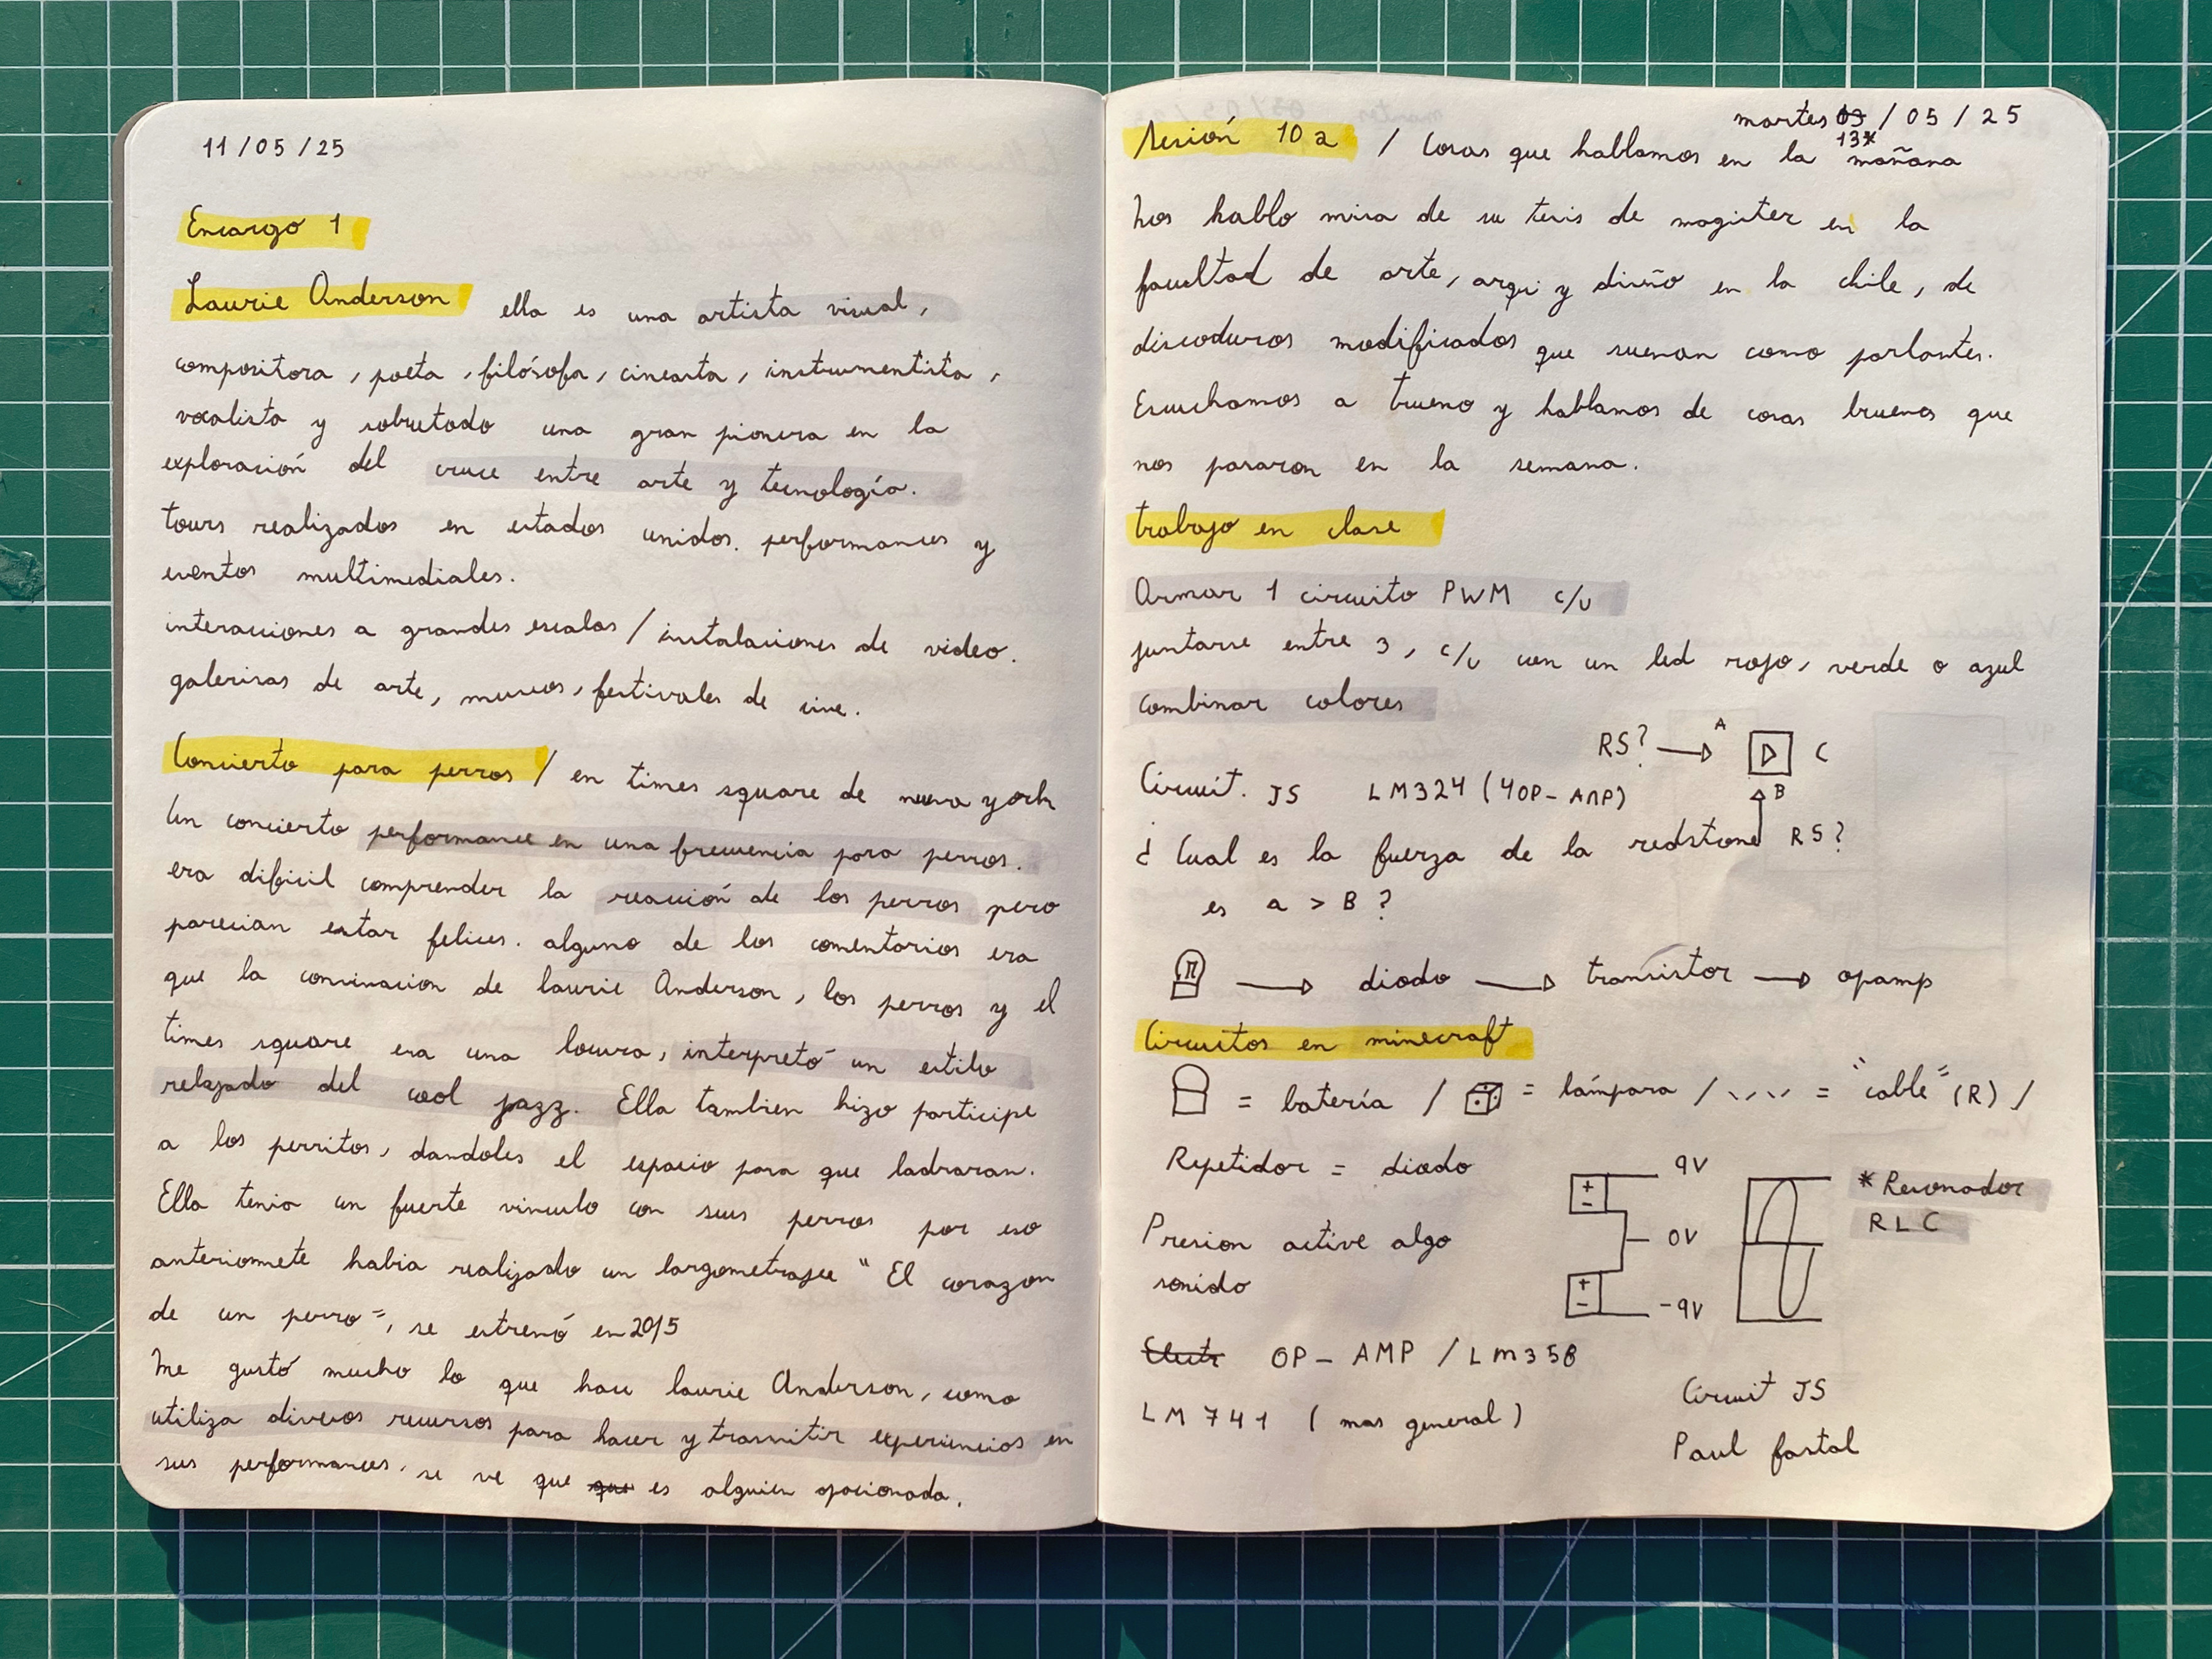 11/05/25
Encargo 1
Laurie Anderson ella es una artista visual,
compositora, poeta, filósofa, cineasta, instrumentista,
vocalista y sobretodo una gran pionera en la
exploración del cruce entre arte y tecnología.
tours realizados en estados unidos. performances y
eventos multimediales.
interacciones a grandes escalas / instalaciones de video.
galerisas de arte, museos, festivales de cine.
Concierto para perros / en times square de nueva york
Un concierto performance en una frecuencia para perros.
era dificil comprender la reacción de los perros pero
parecian estar felices. alguno de los comentarios era
que la convinacion de laurie Anderson, los perros y el
times square era una locura, interpretó un estilo
relajado del cool jazz. Ella tambien hizo participe
a los perritos, dandoles el espacio para que ladraran.
Ella tenia un fuerte vinculo con sus perros por eso
anteriomete habia realizado un largometrajee "El corazon
de un perro", se estrenó en 2015
Me gustó mucho lo que hace laurie Anderson, como
utiliza diversos recursos para hacer y trasmitir experiencias en
sus performances. se ve que que es alguien apasionada.
martes 03 / 05 / 25
13*
Sesión 10 a / Cosas que hablamos en la mañana
Nos hablo misa de su tesis de magister en la
facultad de arte, arqui y diseño en la chile, de
discoduros modificados que suenan como parlantes.
Escuchamos a trueno y hablamos de cosas buenas que
nos pasaron en la semana.
trabajo en clase
Armar 1 circuito PWM c/u
juntarse entre 3, c/u con un led rojo, verde o azul
combinar colores
RS? A C
Circuit. JS LM324 (4OP-AMP) B
¿Cual es la fuerza de la redstone RS?
es a > B ?
diodo transistor opamp
Circuitos en minecraft
= batería / = lámpara / = "cable" (R) /
Repetidor = diodo
9V
* Resonador
RLC
Presion active algo
0V
sonido
-9V
Electr OP-AMP / LM358
LM741 (mas general)
Circuit JS
Paul fastal